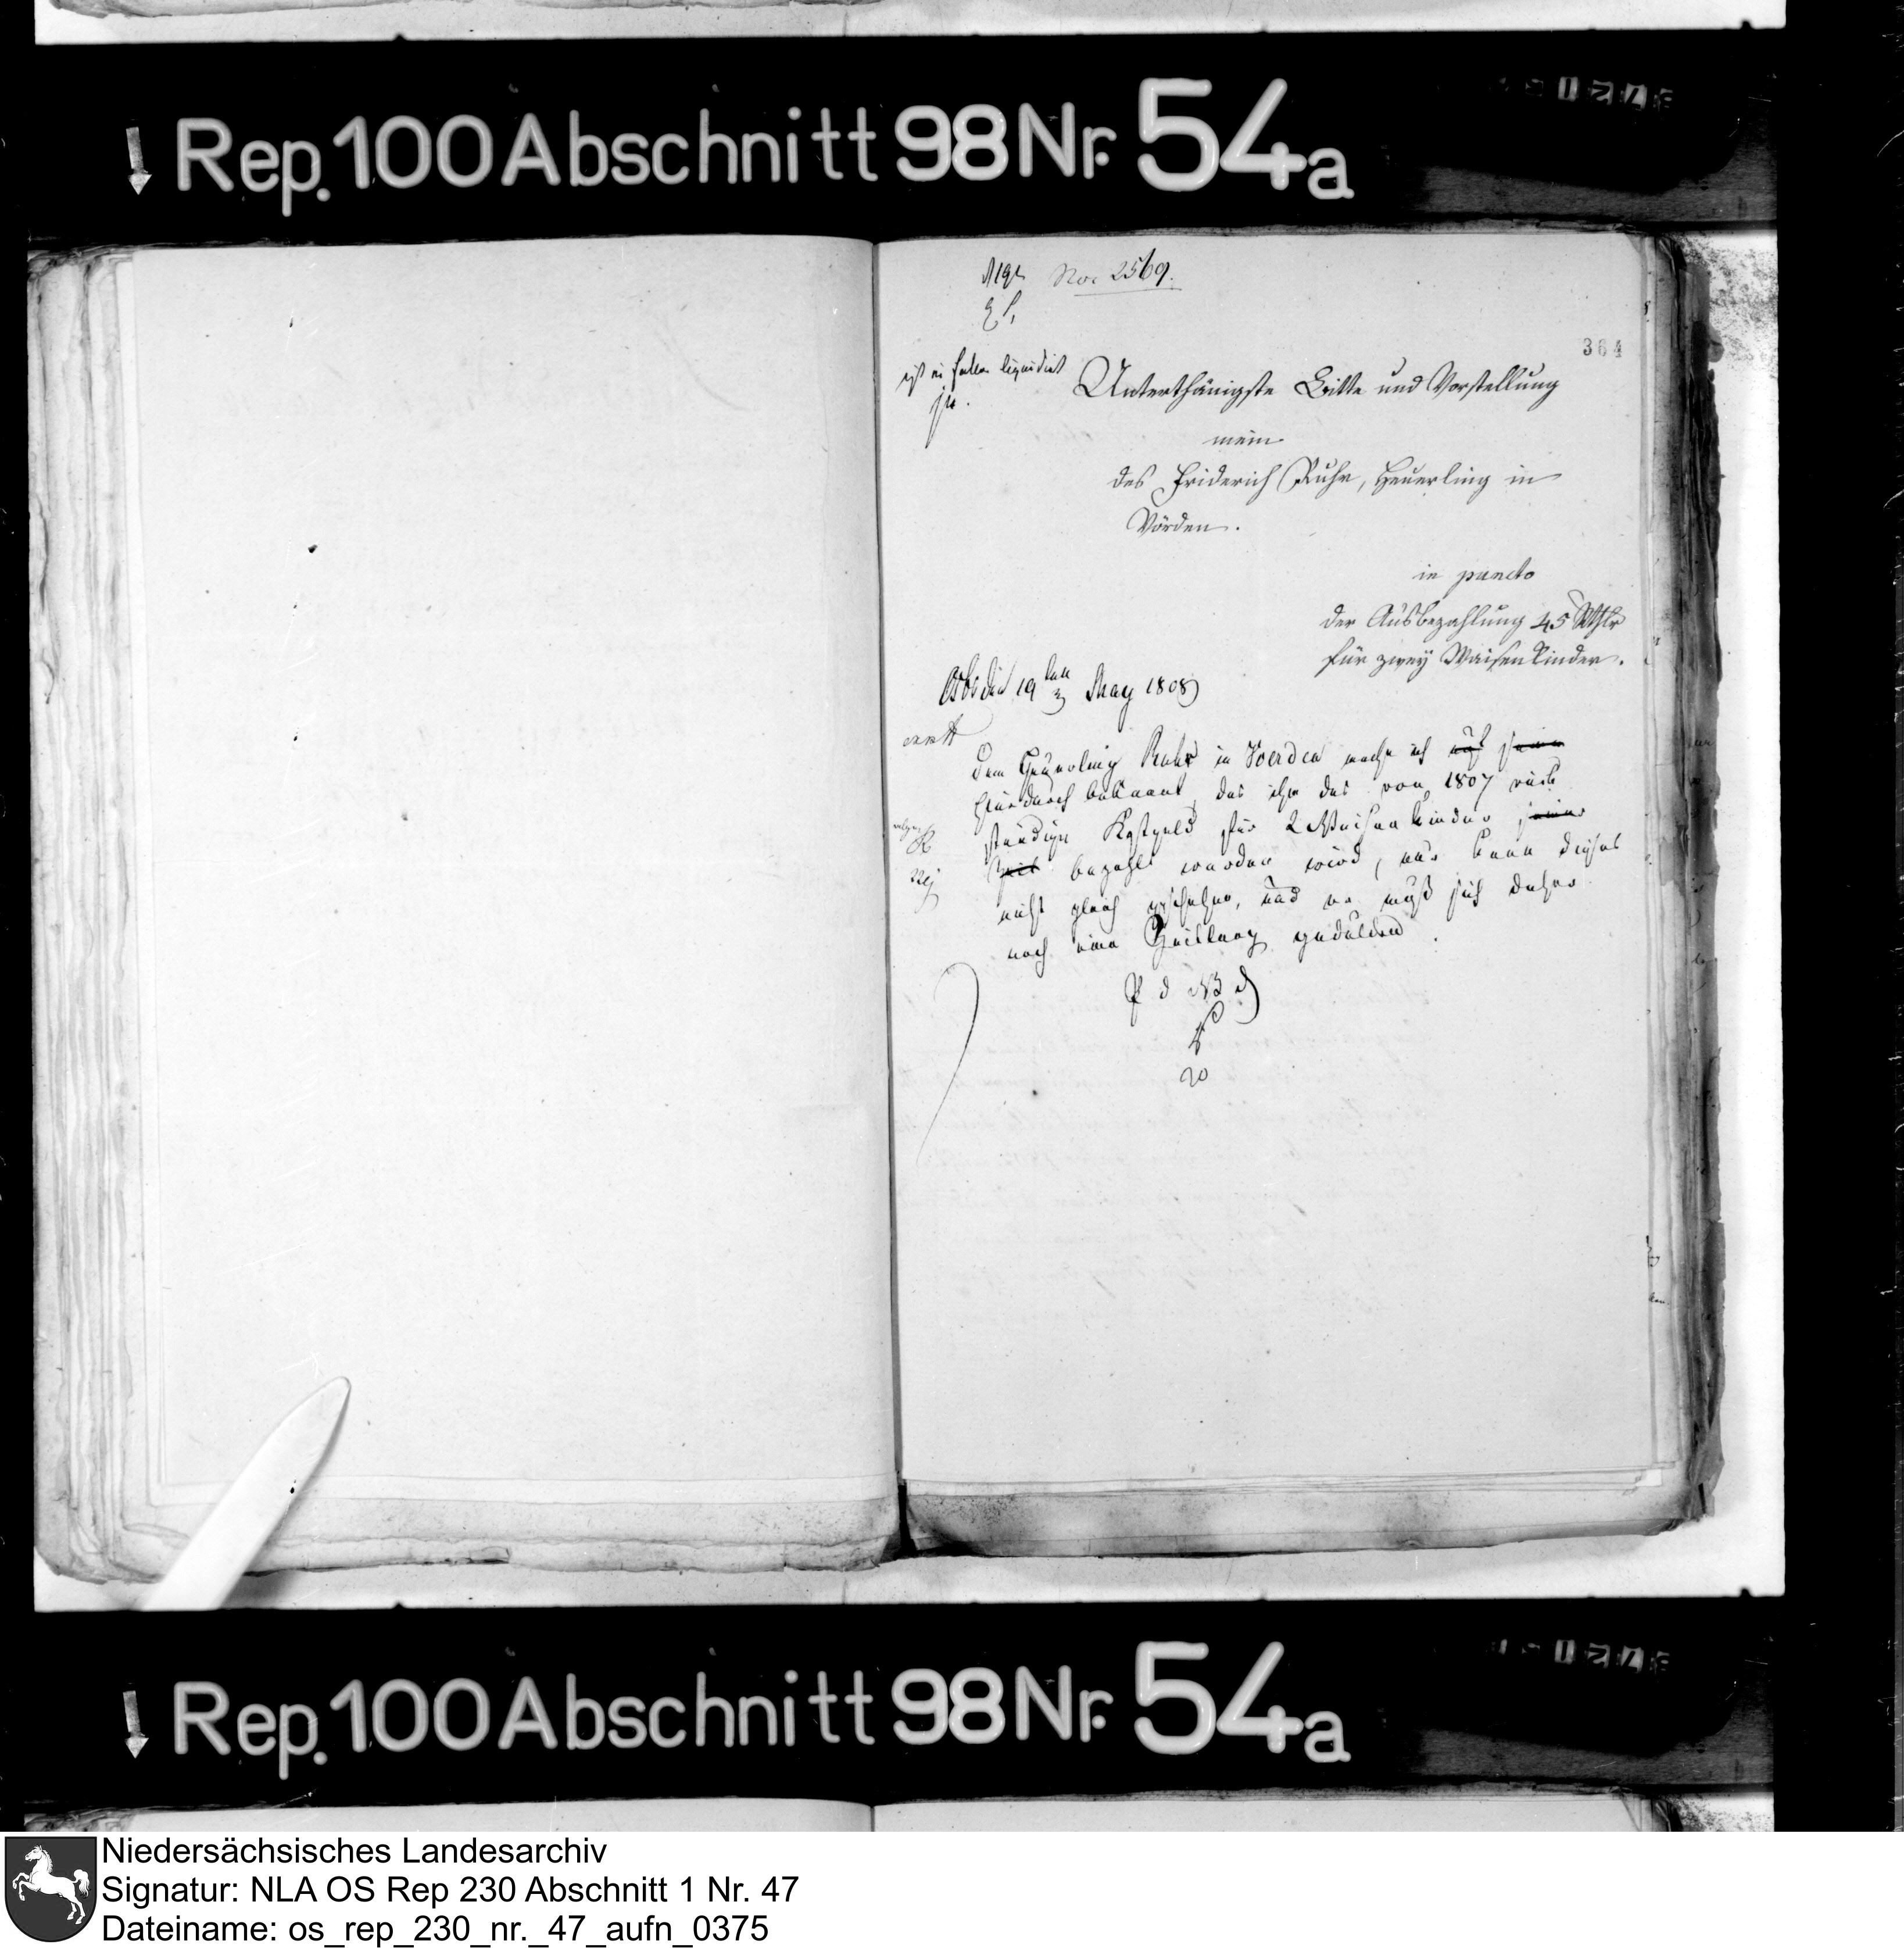 Rep. 100 Abschnitt 98 Nr. 54a
No. 2569.
364
ist in liquidirt
Unterthänigste Bitte und Vorstellung
mein
des Friderich Ruhr, Heuerling in
Vörden.
in puncto
der Ausbezahlung 45 Rthlr
für zwey Waisenkinder.
Osb den 19ten May 1808
Dem Heuerling Ruhr in Voerden mache ich auf seine
hierdurch bekannt, das ihm das von 1807 rück
ständige Kostgeld für 2 Waisenkinder seiner
Zeit bezahlt werden wird, nur kann dieses
nicht gleich geschehen, und er muß sich daher
noch eine Zeitlang gedulden.
P d
20
Rep. 100 Abschnitt 98 Nr. 54a
Niedersächsisches Landesarchiv
Signatur: NLA OS Rep 230 Abschnitt 1 Nr. 47
Dateiname: os_rep_230_nr._47_aufn_0375